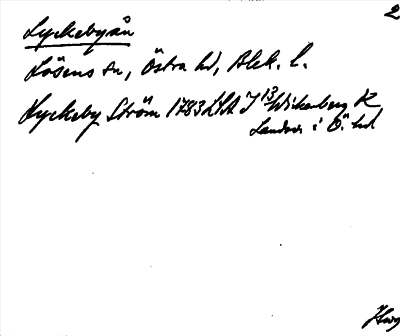 2
Lyckebyån
Lösens sn, Östra hd, Blek. l.
Lyckeby Ström 1783 LSA J 13 Wikenberg K
Landsv. i Ö. hd